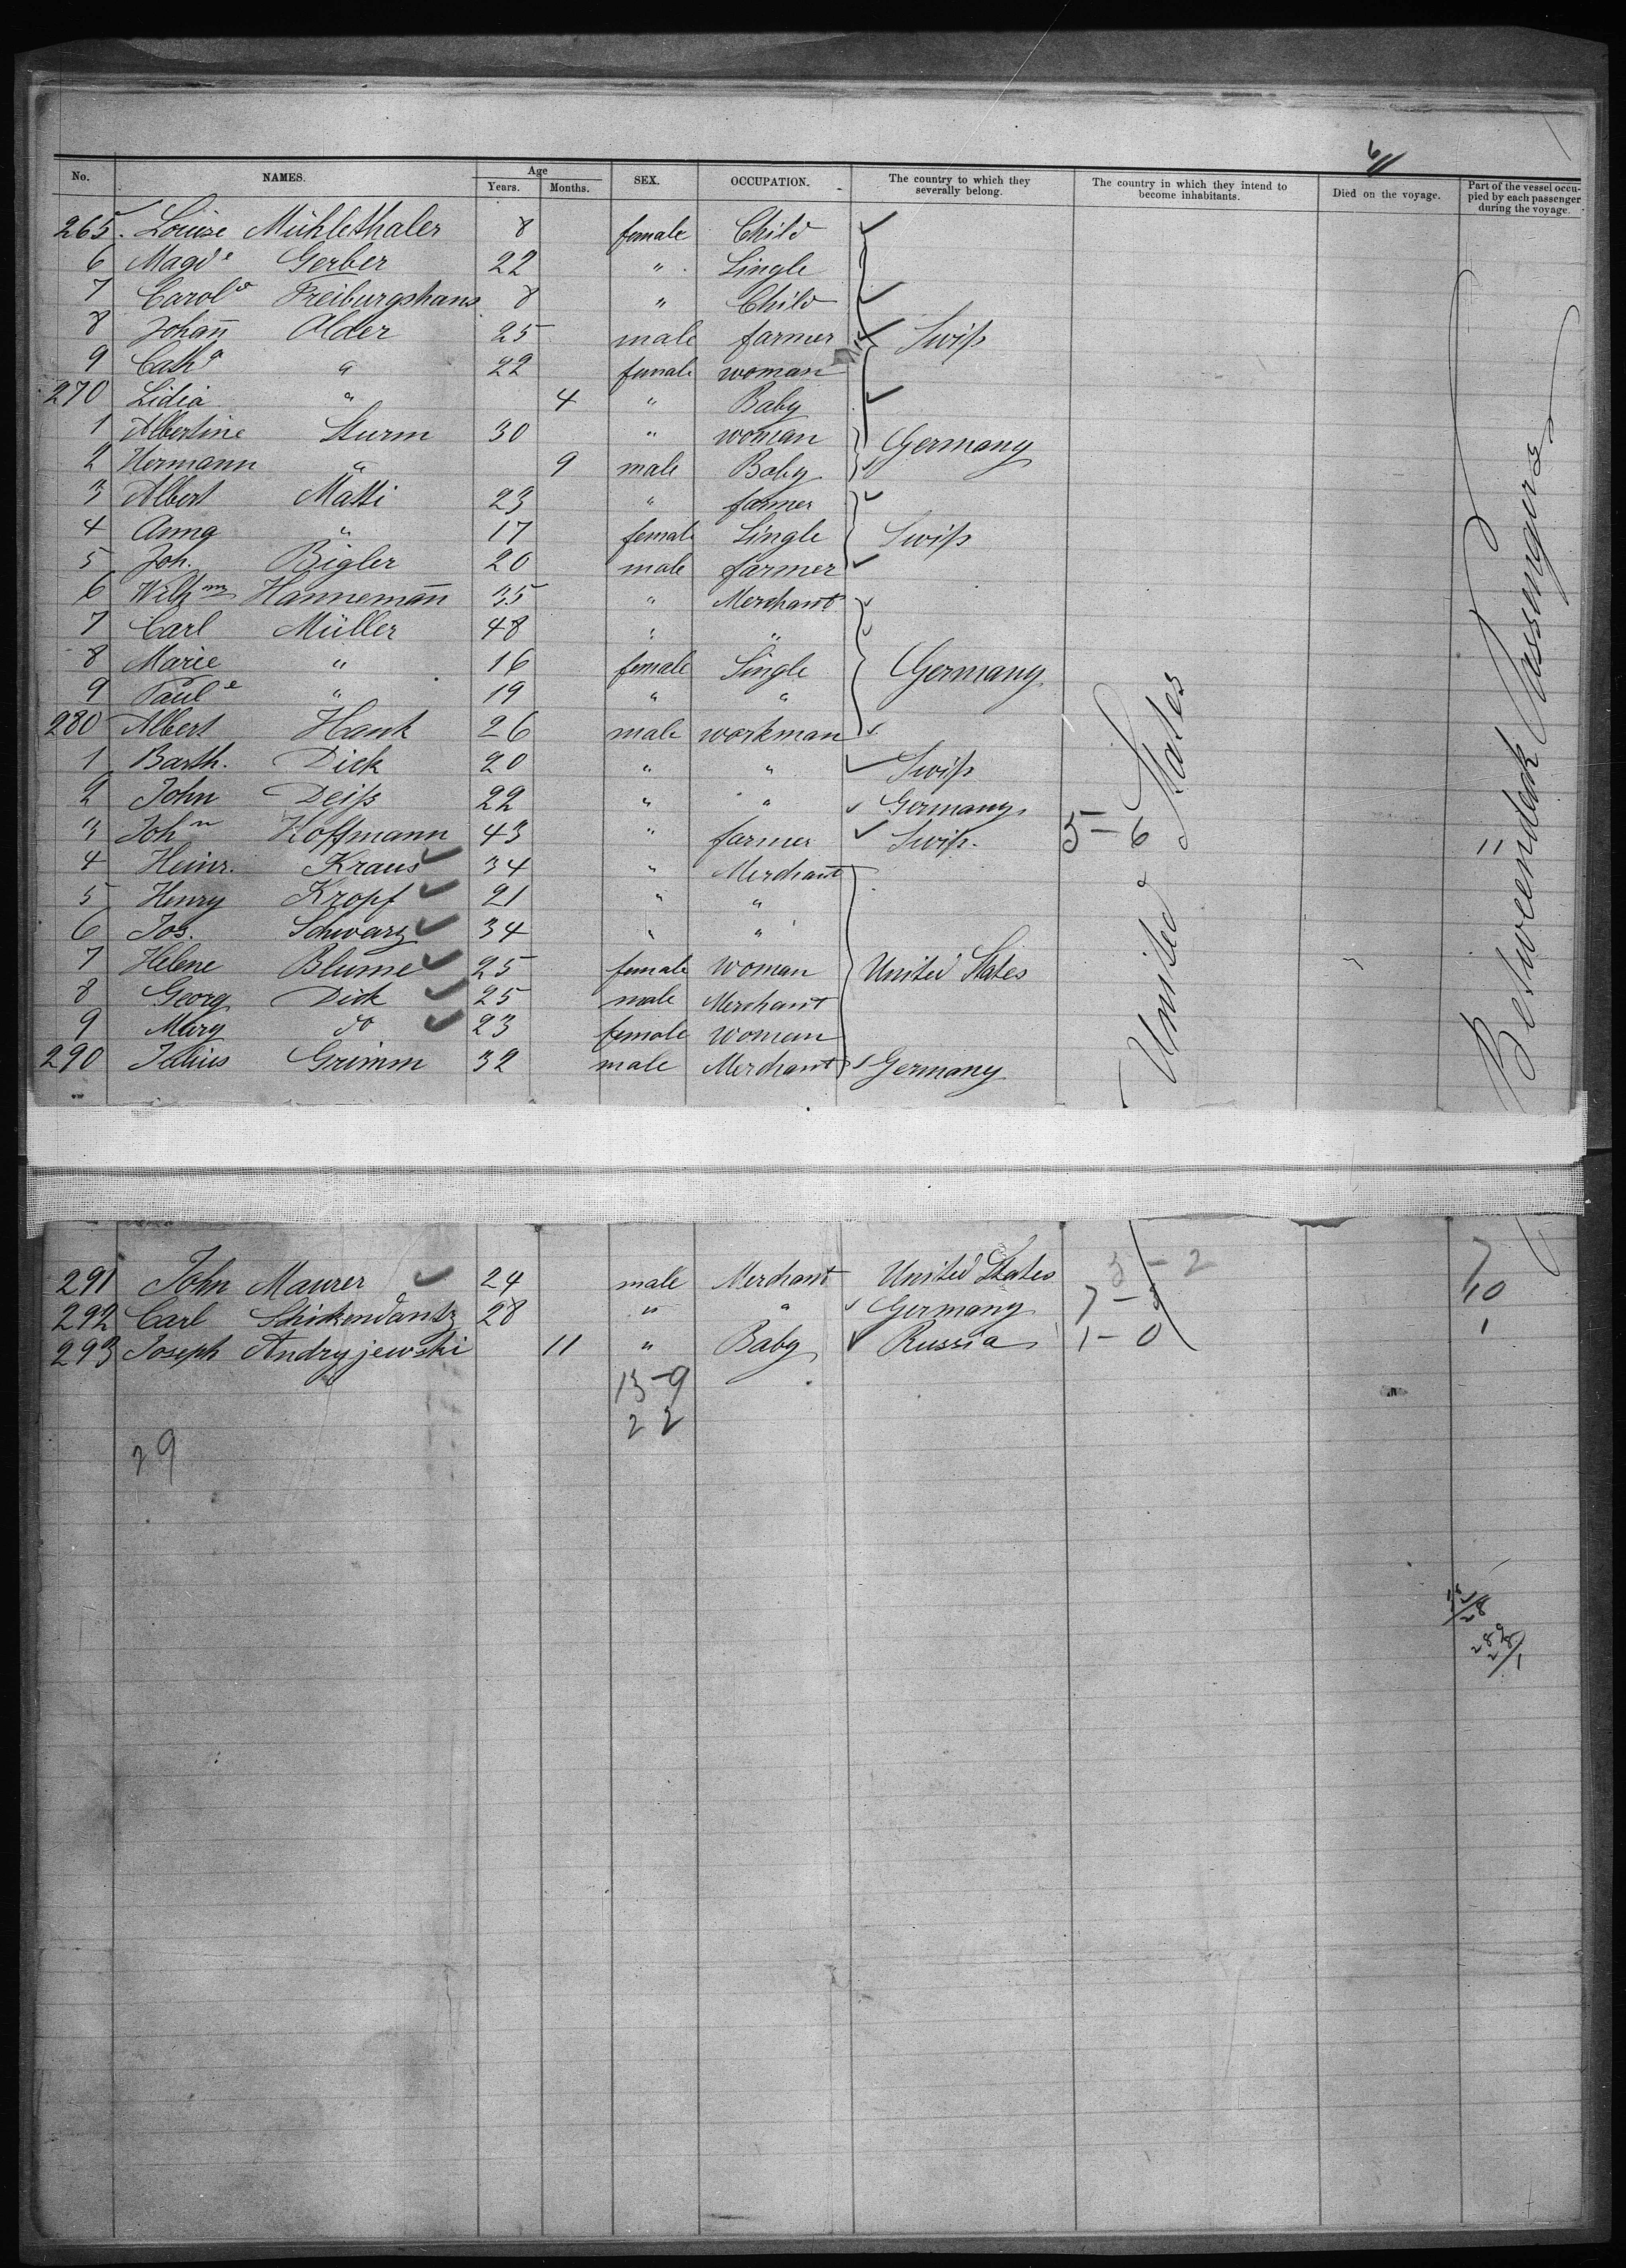 6/11
No. NAMES. Age Years. Months. SEX. OCCUPATION. The country to which they severally belong. The country in which they intend to become inhabitants. Died on the voyage. Part of the vessel occupied by each passenger during the voyage.
265. Louise Mühlethaler 8 female Child
6 Magde Gerber 22 " Single
7 Carola Freiburgshans 8 " Child
8 Johañ Alder 25 male farmer Swiß
9 Catha " 22 female woman
270 Lidia " 4 " Baby
1 Albertine Sturm 30 " woman Germany
2 Hermann " 9 male Baby
3 Albert Matti 23 " farmer
4 Anna " 17 female Single Swiß
5 Joh. Bigler 20 male farmer
6 Wilhm Hannemañ 35 " Merchant
7 Carl Müller 48 " "
8 Marie " 16 female Single Germany
9 Paule " 19 " "
280 Albert Hank 26 male workman
1 Barth. Dick 20 " " Swiß
2 John Deiß 22 " " Germany
3 Johnn Hoffmann 43 " farmer Swiß. 5-6 11
4 Heinr. Kraus 34 " Merchant
5 Henry Kropf 21 " "
6 Jos. Schwarz 34 " "
7 Helene Blume 25 female woman United States
8 Georg Dick 25 male Merchant
9 Mary do 23 female woman
290 Julius Grimm 32 male Merchant Germany
United States
Betweendeck Passengers
291 John Maurer 24 male Merchant United States 3-2
292 Carl Schickendantz 28 " " Germany 7-3 10
293 Joseph Andryjewski 11 " Baby Russia 1-0 1
13-9
22
29